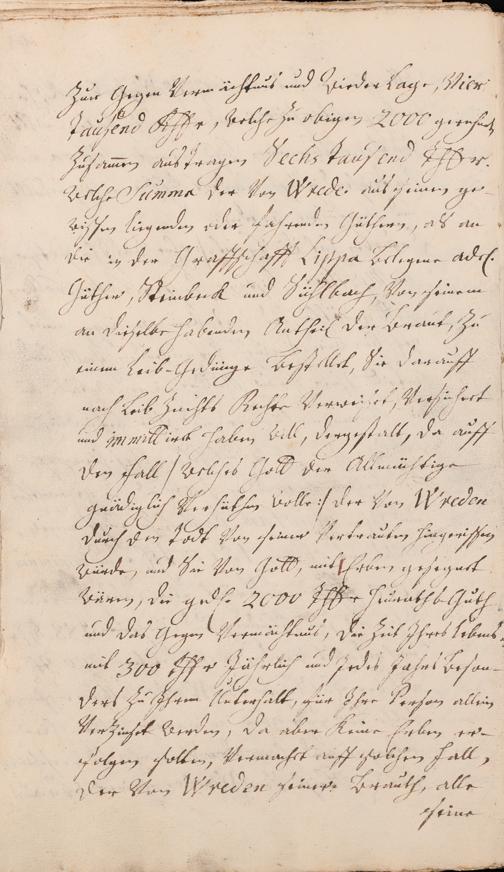 Zur Gegen Vermächtnus und Wieder Lage, Vier
Tausend Rthlr, Welche zu obigen 2000 gerechnet
Zusammen austragen Sechs Tausend Rthlr.
Welche Summa der Von Wrede aus seinen ge-
wissen liegenden oder fahrenden Güthern, als an
die in der Graffschafft Lippa belegene adel.
Güther, Steinbeck und Sühlbach, Von seinem
an dieselbe habenden Antheil der Braut, zu
einem Leib-Gedinge bestellet, Sie darauff
nach Leib Zuchts Rechte Verweiset, Versichert
und immittirt haben will, dergestalt, da auff
den fall /: welches Gott der Allmächtige
gnädiglich Verhüthen wolle :/ der Von Wreden
durch den Todt Von seiner Vertrauten hingerissen
würde, und Sie Von Gott, mit Erben gesegnet
wären, die gedte 2000 Rthlr Heuraths Guth
und das Gegen Vermächtnus, die Zeit Ihres Lebens
mit 300 Rthlr Jährlich und Jedes Jahrs beson-
ders zu Ihrem Unterhalt, für Ihre Person allein
Verzinset werden, da aber keine Erben er-
folgen solten, Vermacht auff solchen fall,
der Von Wreden seiner Brauth, alle
seine